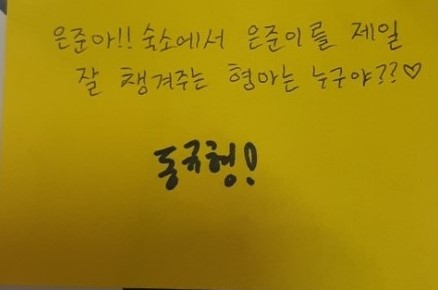 은준아!! 숙소에서 은준이를 제일
잘 챙겨주는 형아는 누구야??♡
동규형!